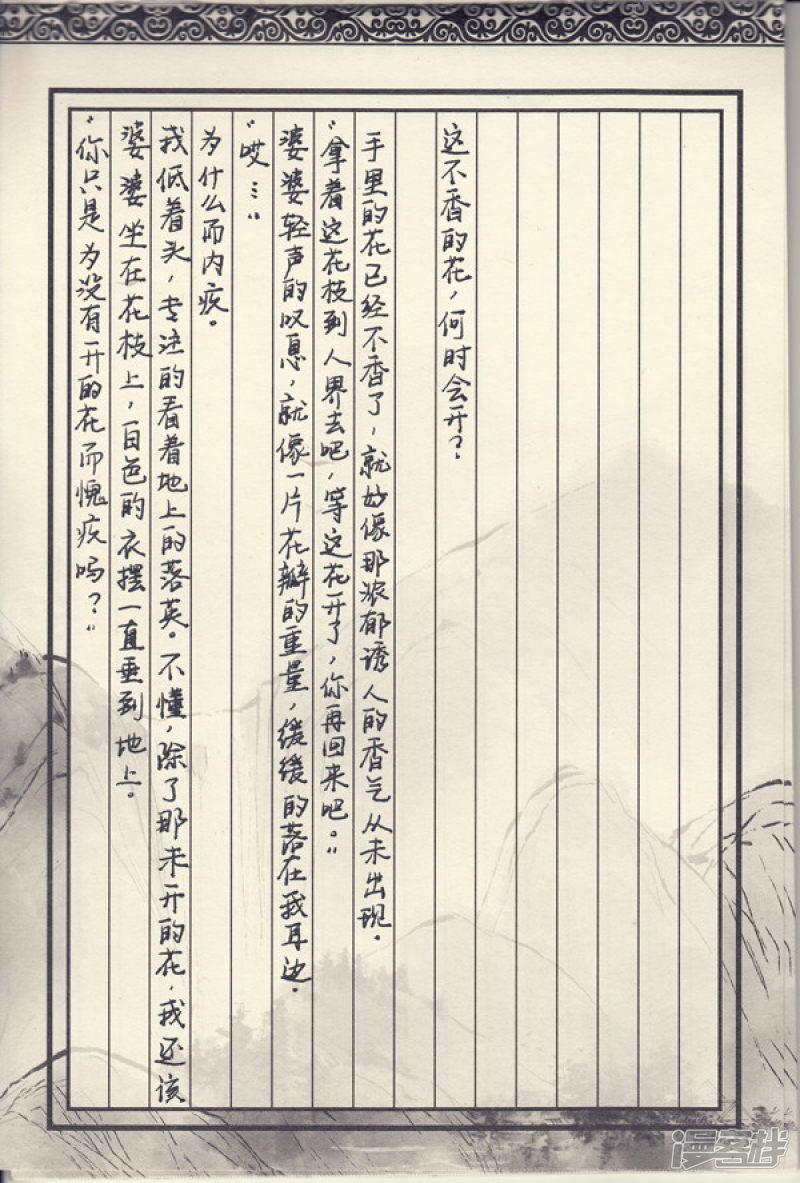 “你只是为没有开的花而愧疚吗？”
婆婆坐在花枝上，白色的衣摆一直垂到地上。
我低着头，专注的看着地上的落英。不懂，除了那未开的花，我还该
为什么而内疚。
“哎…”
婆婆轻声的叹息，就像一片花瓣的重量，缓缓的落在我耳边。
“拿着这花枝到人界去吧，等这花开了，你再回来吧。”
手里的花已经不香了，就妙像那浓郁诱人的香气从未出现。
这不香的花，何时会开？
漫客栈